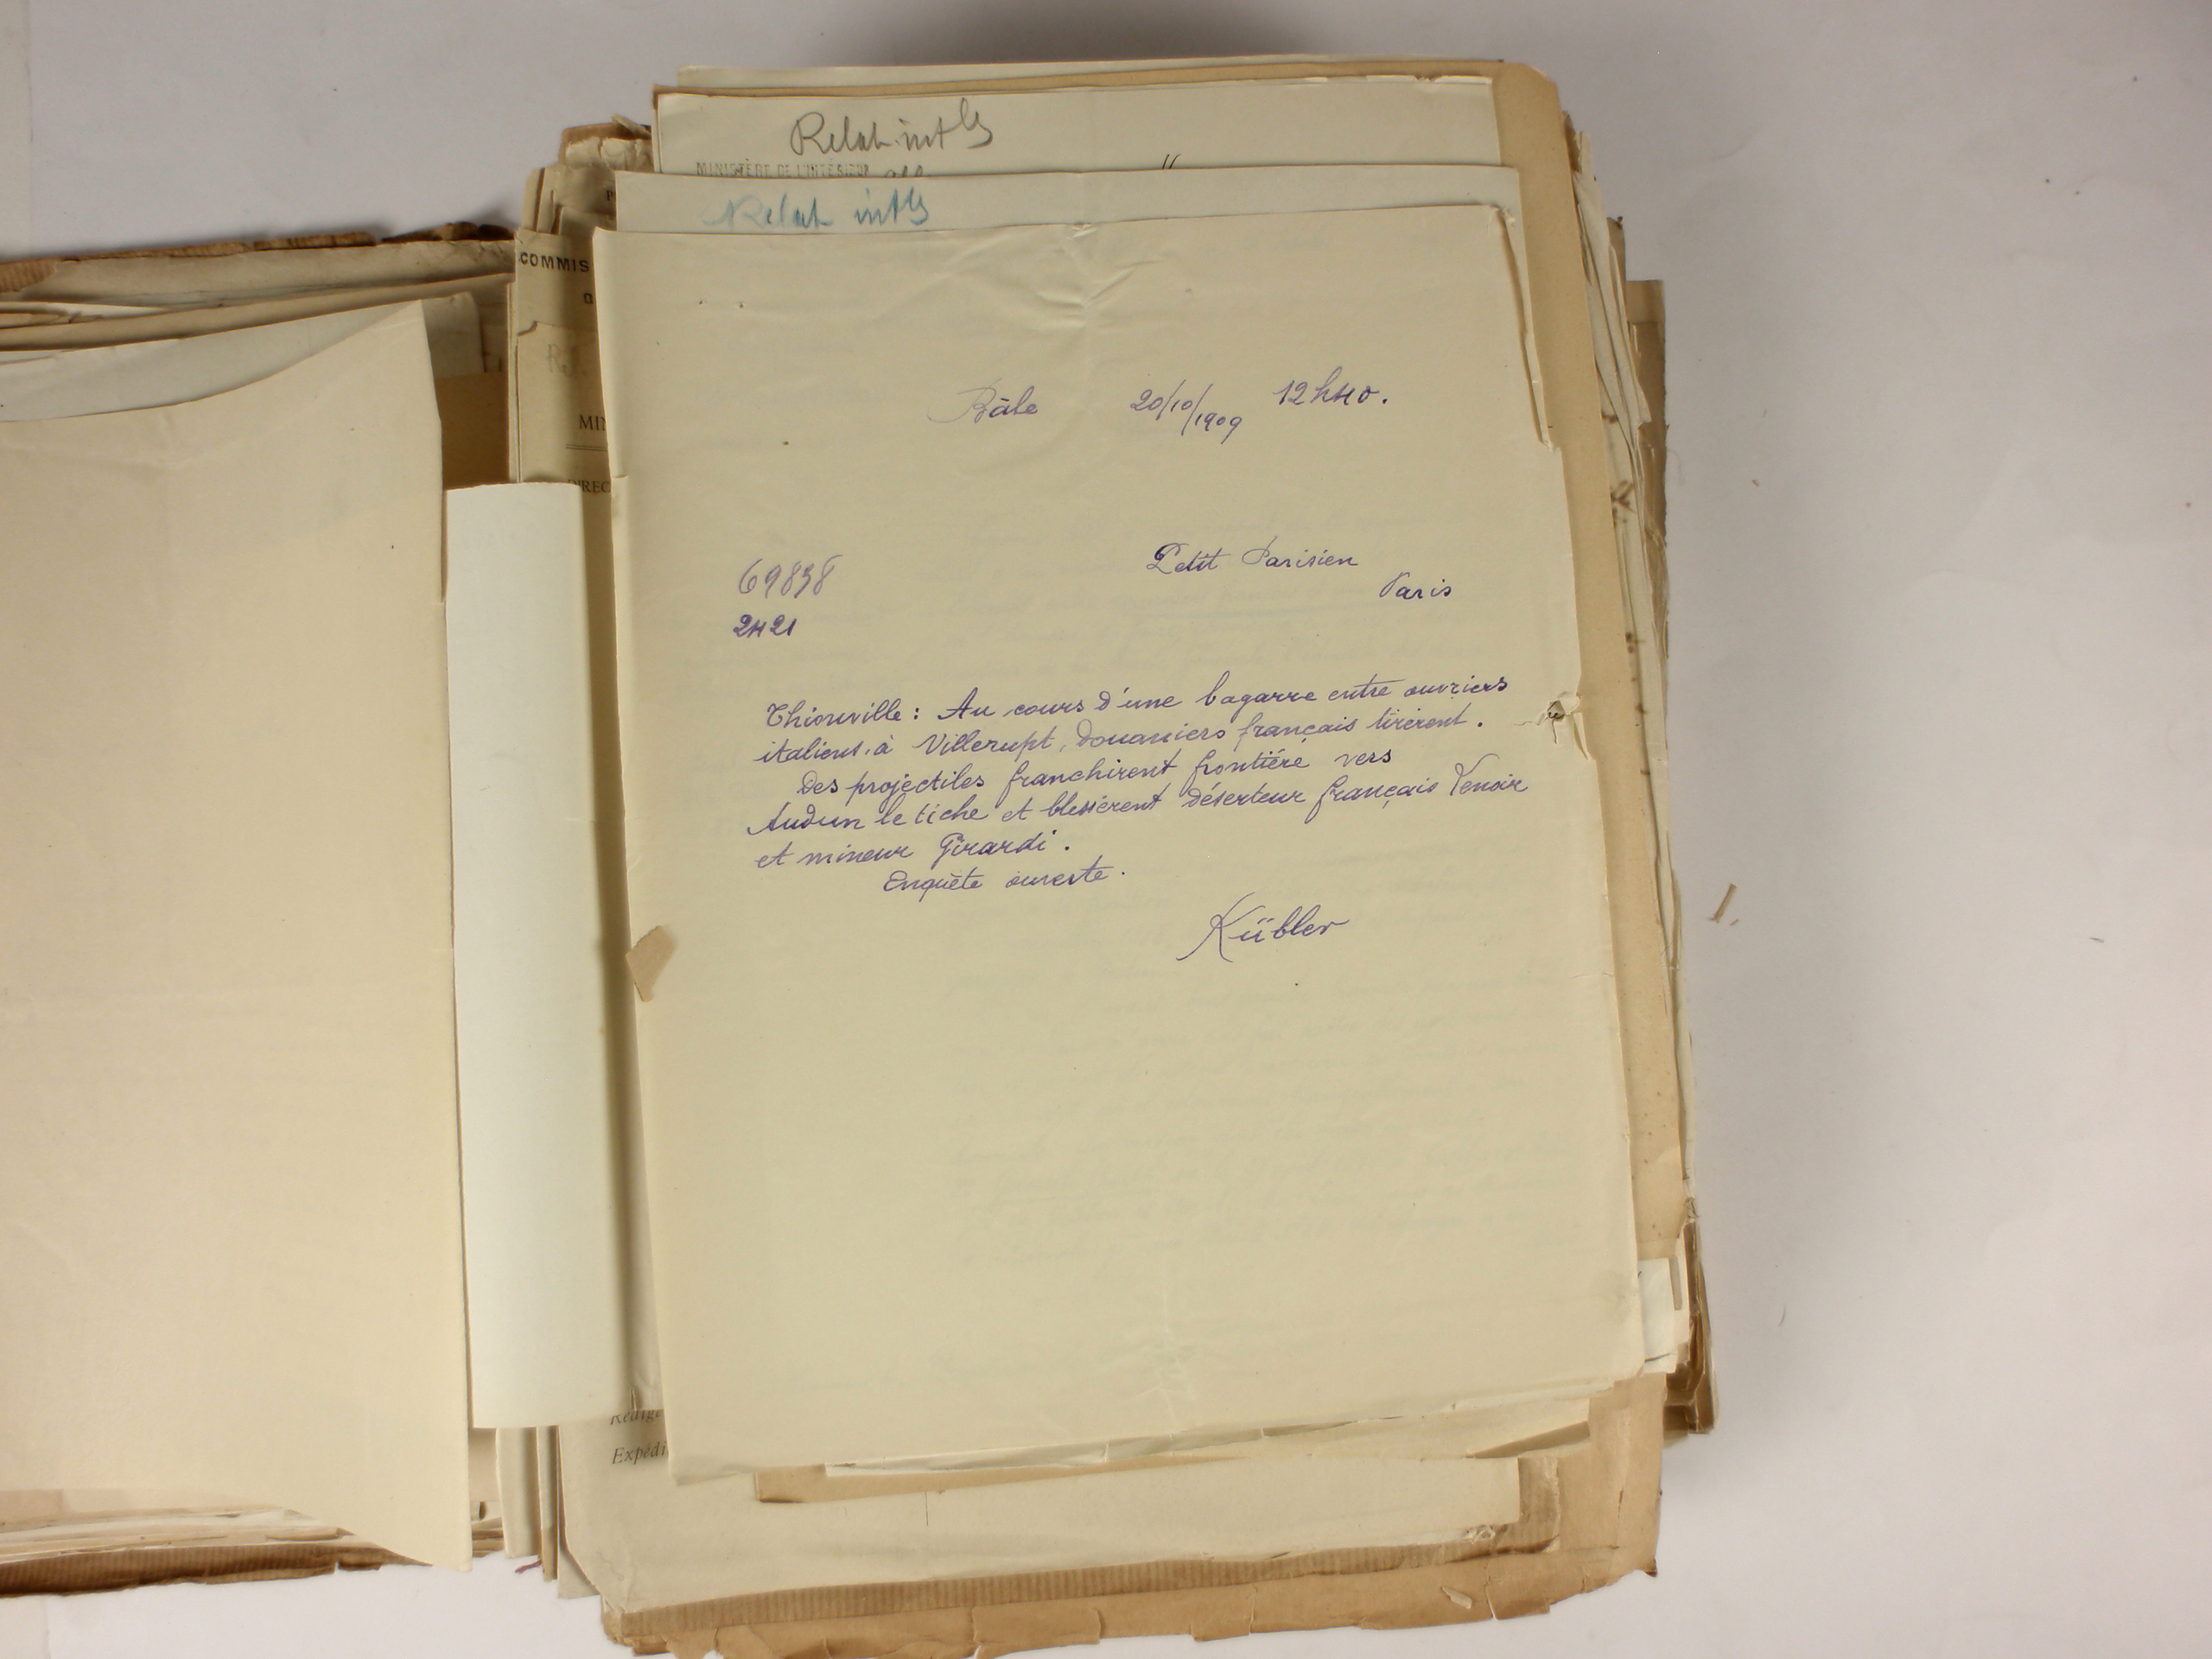 Relat. intles
MINISTÈRE DE L'INTÉRIEUR
Relat intles
COMMIS
R.I.
MI
DIREC
Bâle 20/10/1909 12h40.
Petit Parisien
Paris
69838
2421
Thionville : Au cours d'une bagarre entre ouvriers
italiens à Villerupt, douaniers français tirèrent.
Des projectiles franchirent frontière vers
Audun le tiche et blessèrent déserteur français Venoir
et mineur Girardi.
Enquête ouverte.
Kübler
Rédigé
Expédi